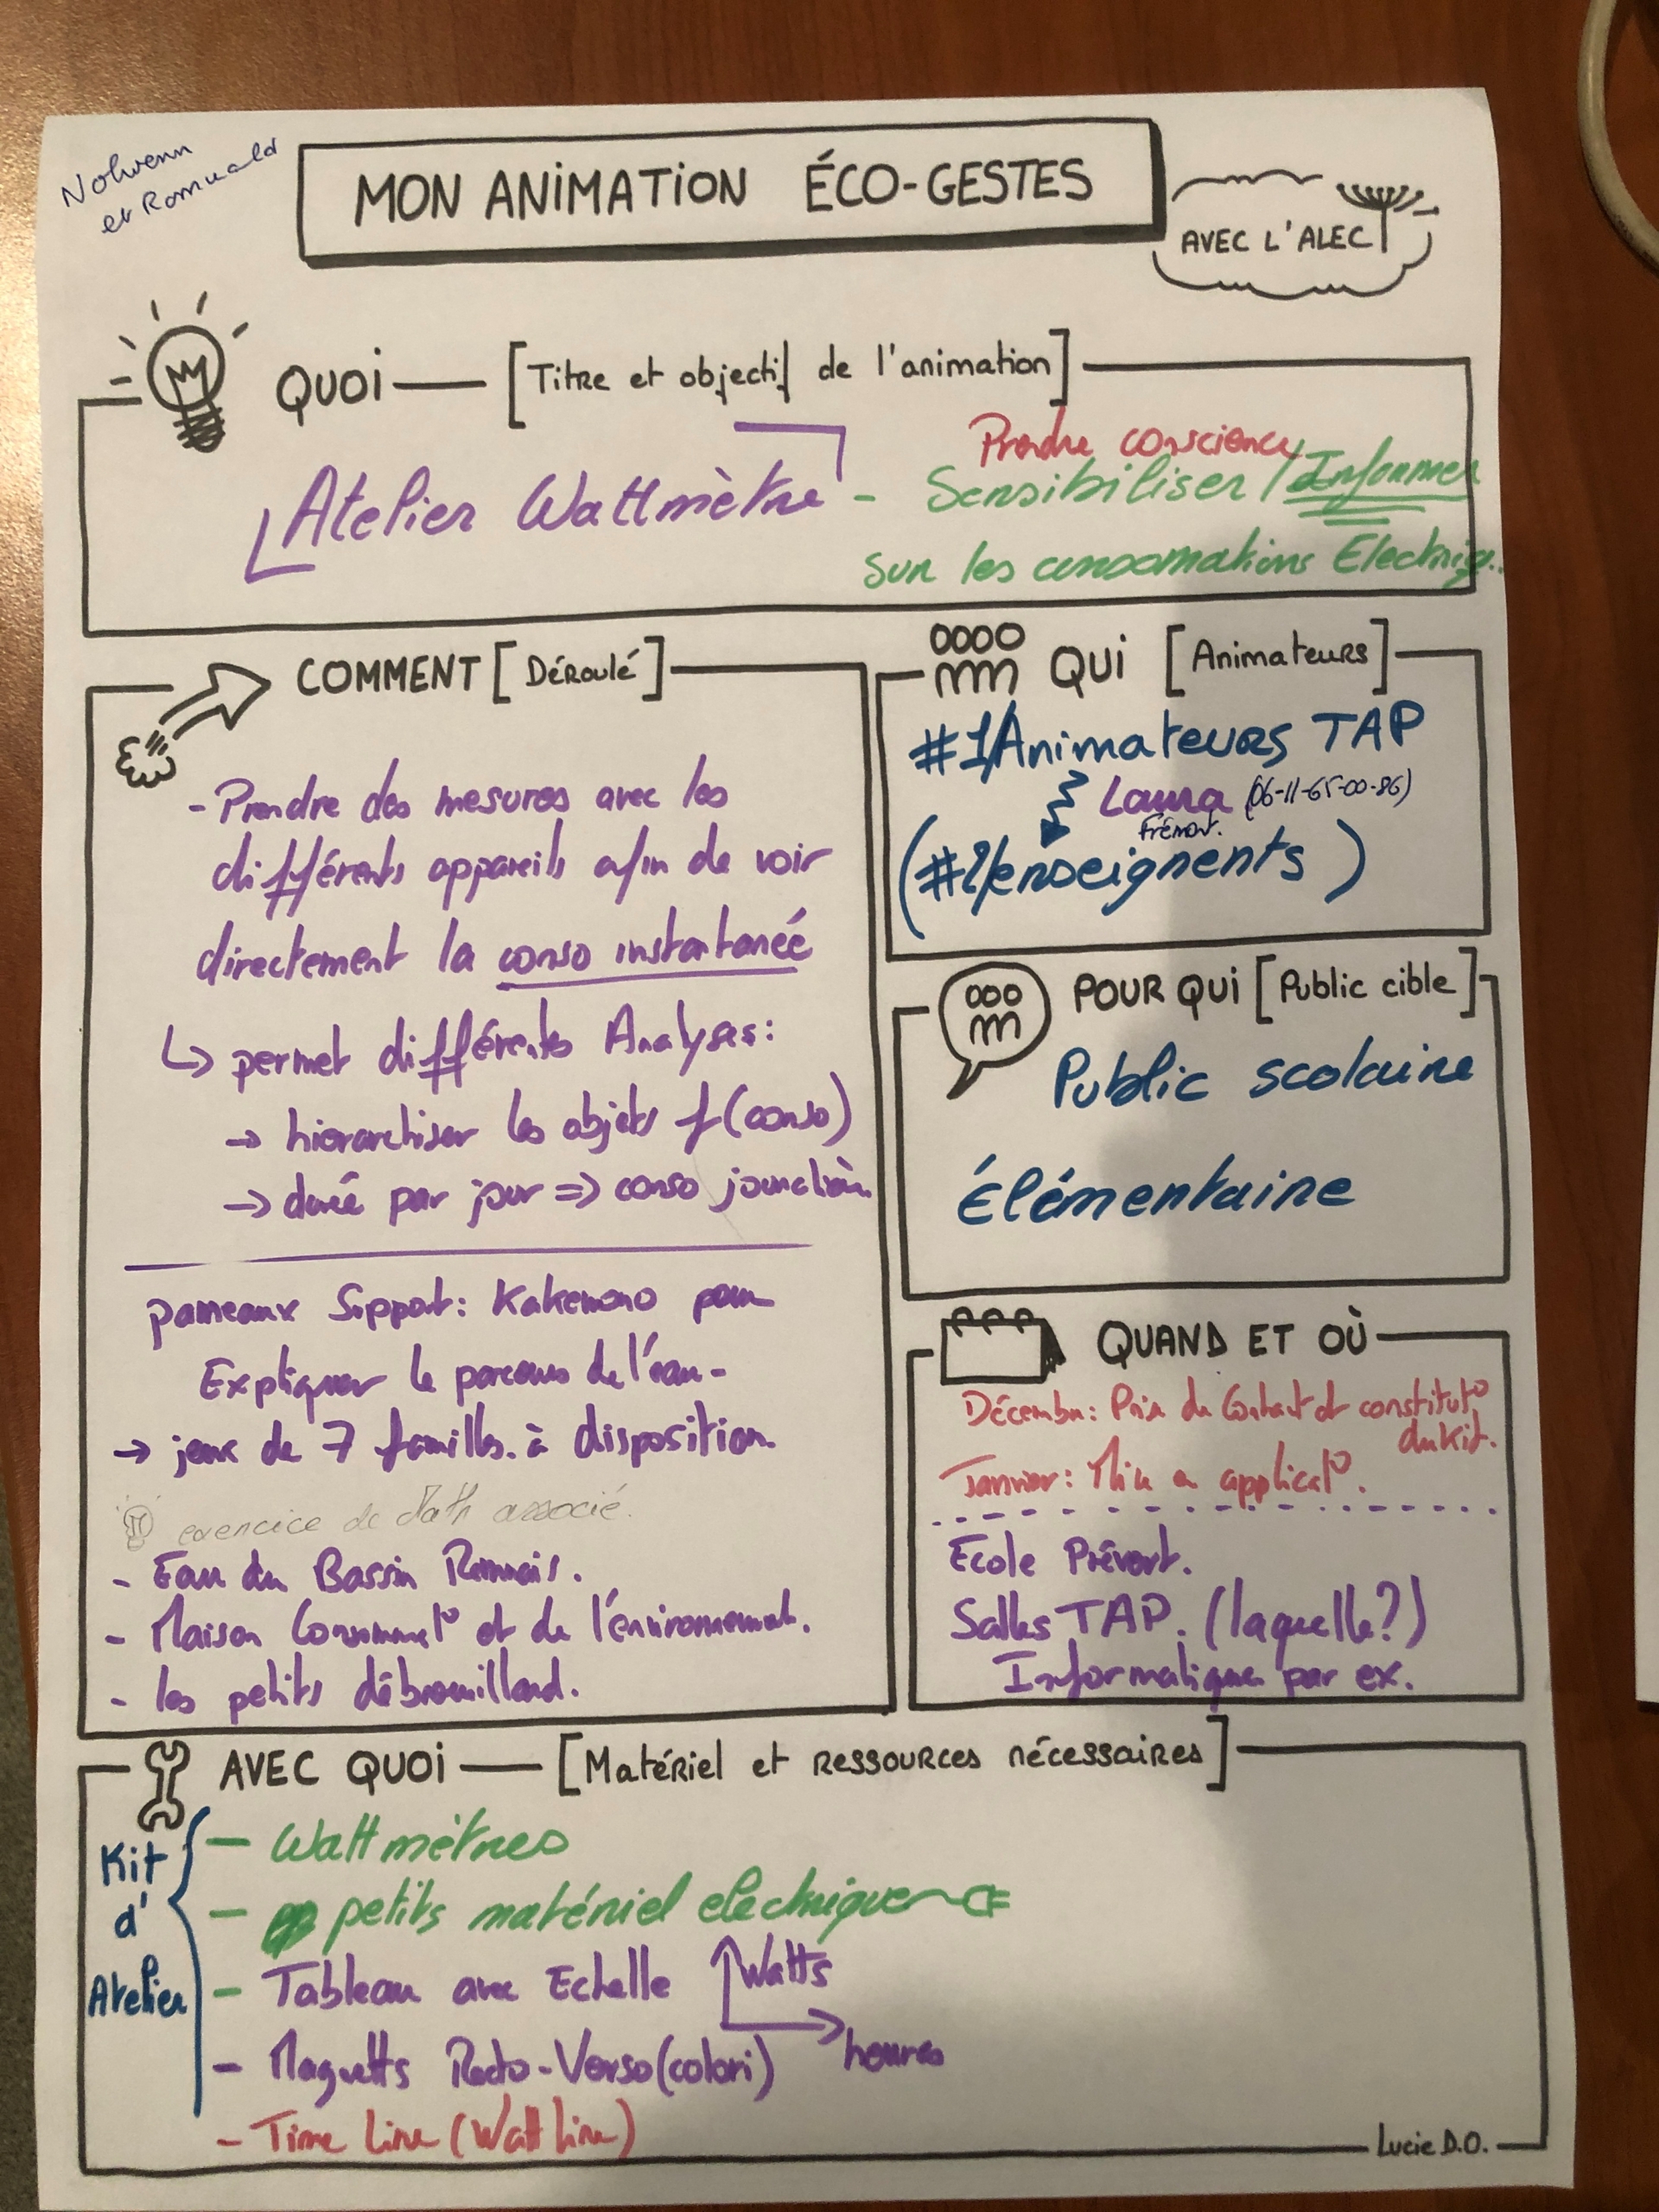 Nolwenn
et Romuald
MON ANIMATION ÉCO-GESTES
AVEC L'ALEC
QUOI — [Titre et objectif de l'animation]
Prendre conscience
Atelier Wattmètre - Sensibiliser / Informer
sur les consomations Electriq..
COMMENT [Déroulé]
- Prendre des mesures avec les
différents appareils afin de voir
directement la conso instantanée
↳ permet différentes Analyses:
→ hierarchiser les objets f(conso)
→ durée par jour => conso journalièr.
panneaux Support: Kakemono pour
Expliquer le parcours de l'eau-
→ jeux de 7 familles. à disposition.
exercice de Math associé.
- Eau du Bassin Rennais.
- Maison Consommat° et de l'environnement.
- les petits débrouillard.
QUI [Animateurs]
#1/Animateurs TAP
Laura (06-11-65-00-86)
Frémont.
(#2/enseignents)
POUR QUI [Public cible]
Public scolaire
Élémentaire
QUAND ET OÙ
Décembre: Prise de Contact et constitut°
du Kit.
Janvier: Mise en applicat°.
Ecole Prévert.
Salles TAP. (laquelle?)
Informatique par ex.
AVEC QUOI — [Matériel et ressources nécessaires]
Kit
d'
Atelier
- Wattmètres
- petits matériel electrique
- Tableau avec Echelle Watts
heures
- Magnetts Recto-Verso (colori)
- Time Line (Watt Line)
Lucie D.O.